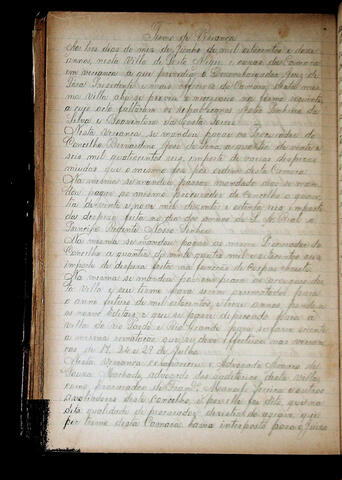 Termo de Vereança
Aos tres dias do mez de Junho de mil oitocentos e doze
annos, nesta Villa de Porto Alegre e cazas da Camara
em vereança a que prezedio o Dezembargador Juiz de
Fóra Prezidente e mais officiaes da Camara desta mes-
ma villa, ahi se proveo e vereou na forma seguinte
a cujo acto faltaram os vereadores José Antonio da
Silva e Boaventura da Costa
Nesta Vereança se mandou pagar ao Procurador do
Concelho Bernardino José de Sena a quantia de vinte e
seis mil quatrocentos seis, importe de varias despezas
miudas que o mesmo fez por ordem desta Camara.
Na mesma se mandou passar mandado dos se man-
dou pagar ao mesmo procurador do Concelho a quan-
tia de vinte e nove mil duzentos e oitenta reis importe
da despeza feita no dia dos annos de S. A. Real o
Principe Regente Nosso Senhor
Na mesma se mandou pagar ao mesmo Procurador do
Concelho a quantia de mil e reis
importe da despeza feita na função de Corpus Christi
Na mesma se mandou por em pregão os
da villa e seu termo para serem arrematados para
o anno futuro de mil oitocentos e treze annos, para
os quaes editaes e que se passe deprecada para a
villa do Rio Pardo e Rio Grande para se fazer sciente
a mesma rematação que se deve effectuar nas verean-
ças de 17, 24 e 27 de Julho.
Nesta Vereança compareceu o Advogado Manoel de
Souza Machado, advogado dos auditorios desta villa
como procurador de Manoel e outros
avaliadores deste Concelho, e por elle foi dito, que na
dita qualidade de procurador, desistia do agravo que
por termo desta Camara havia interposto para o Juizo